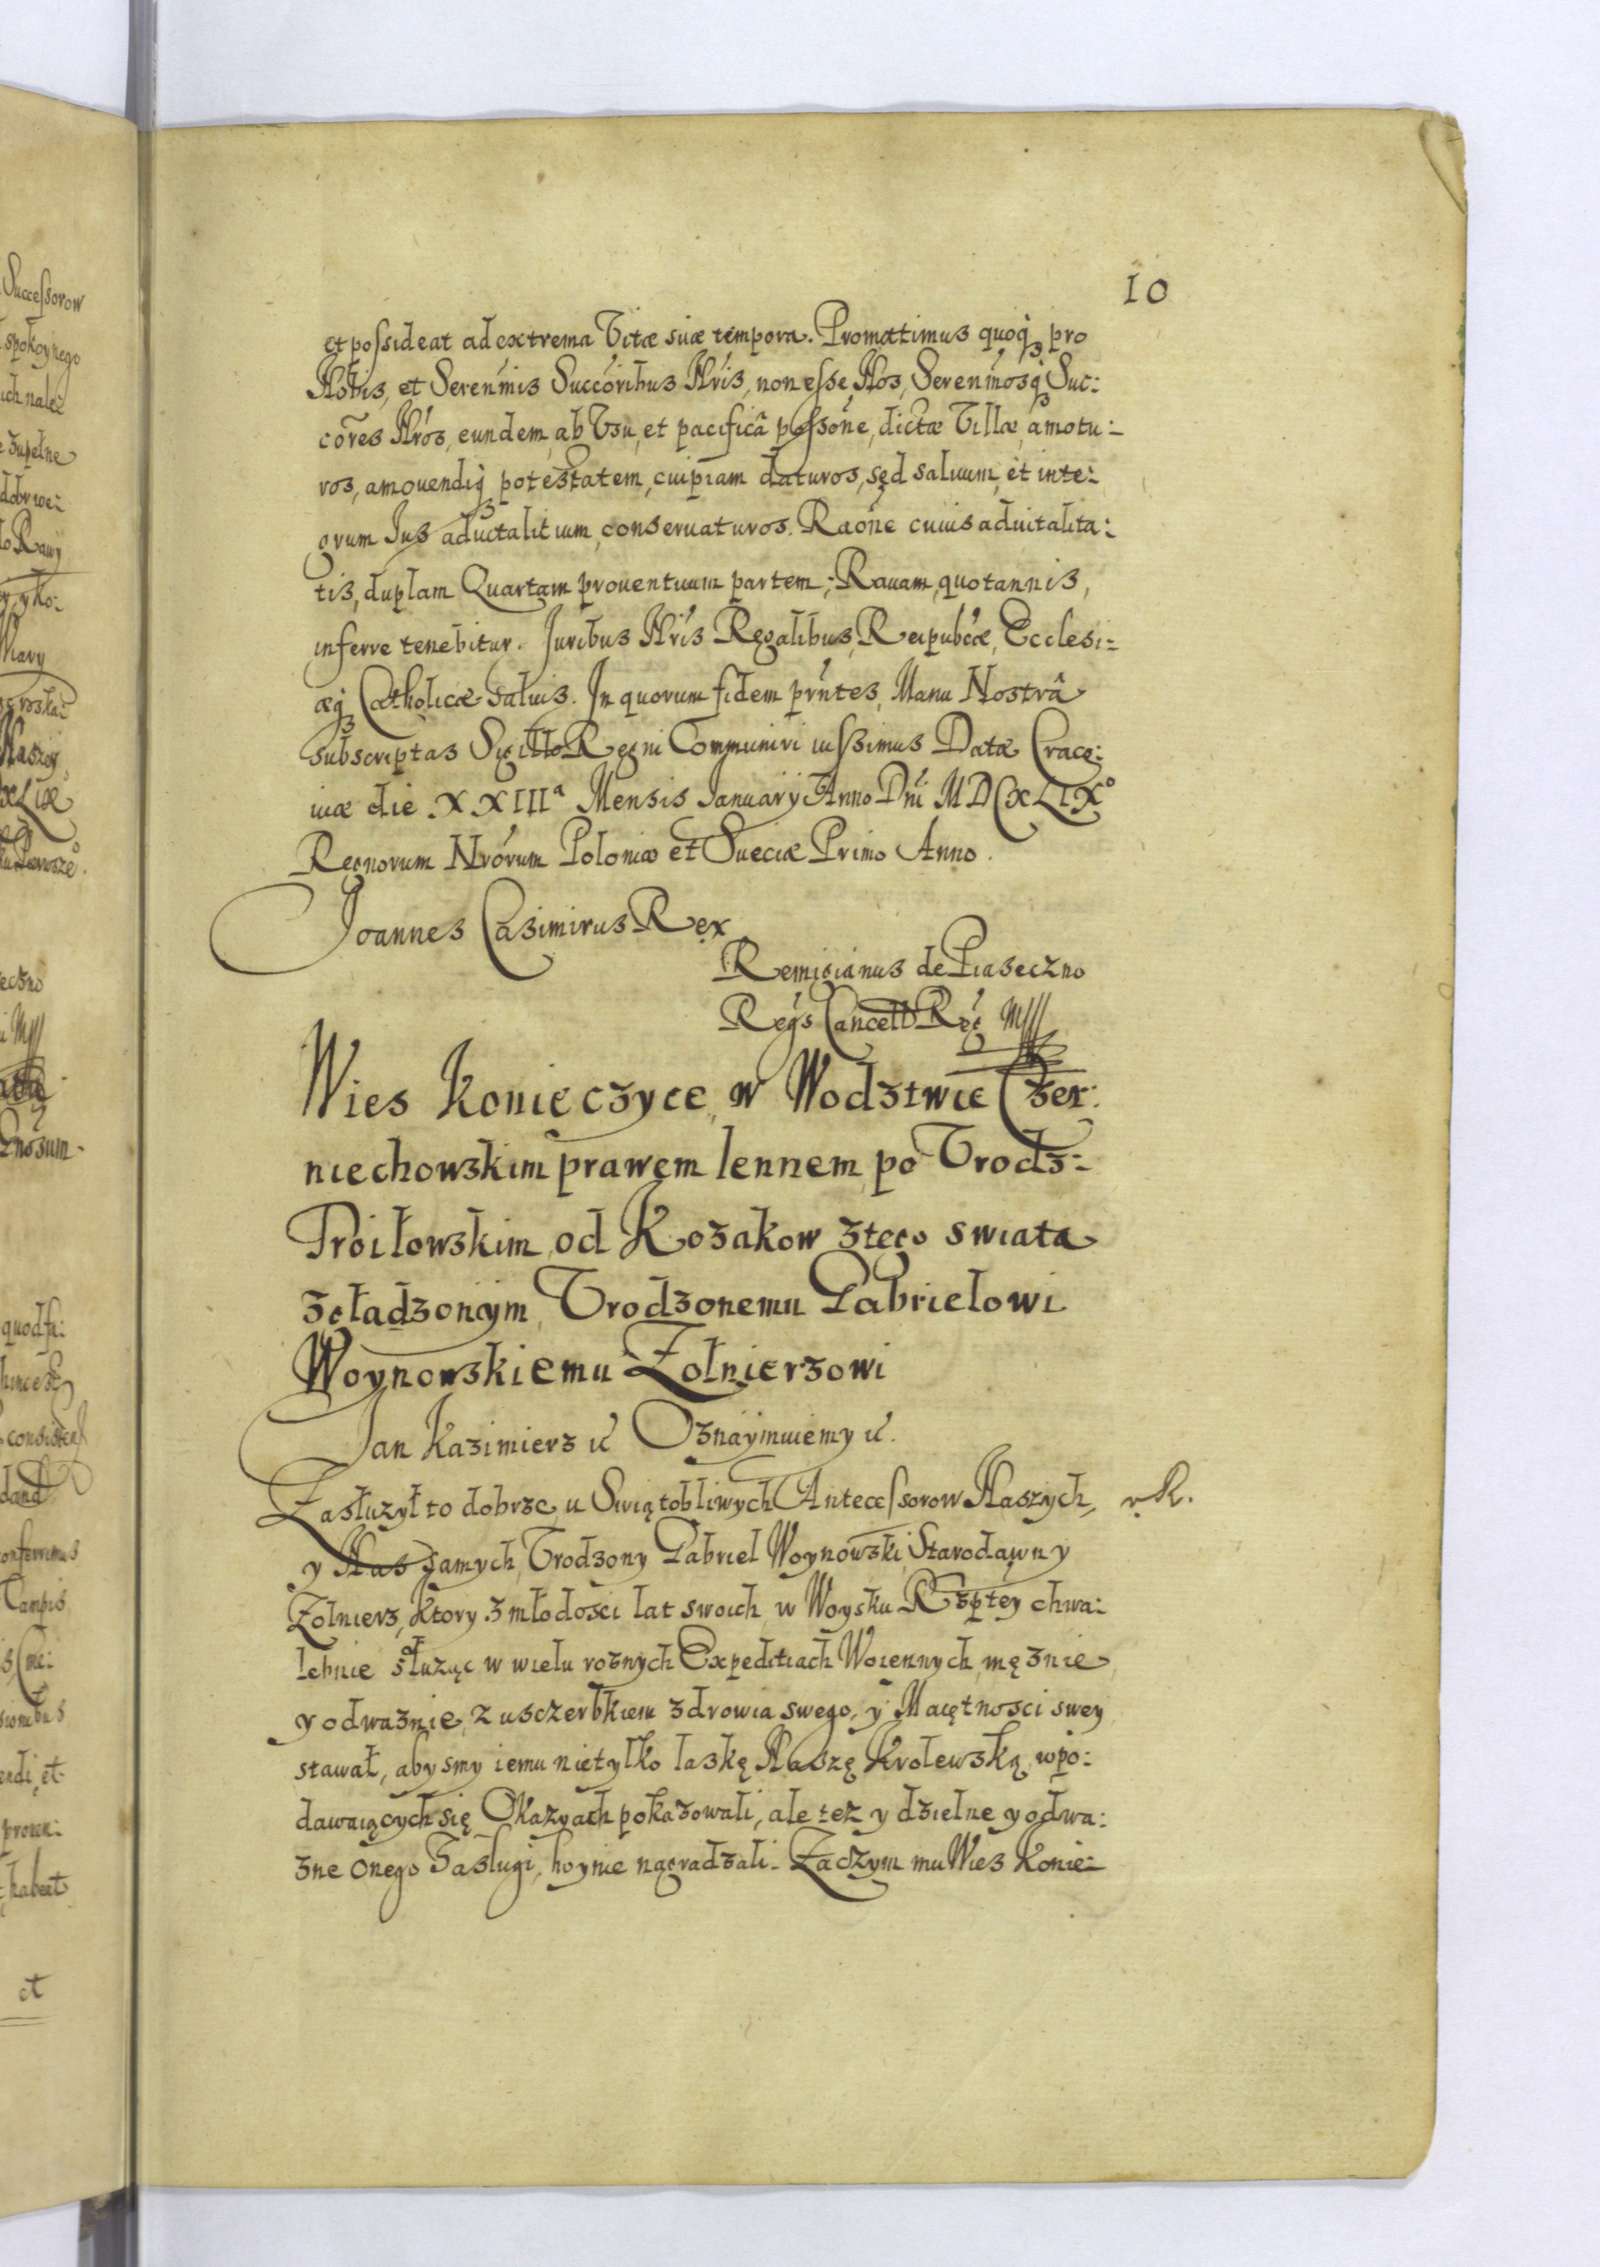 10
et possideat ad extrema Vitæ suæ tempora. Promittimus quoq₃ pro
Nobis, et Serenmis Succoribus Nris, non esse Nos, Serenmosq₃ Suc:
cores Nros, eundem, ab Vsu, et pacificâ possone, dictæ Villæ, amotu:
ros, amouendiq₃ potestatem, cuipiam daturos, sed saluum, et inte:
grum Jus aduitalitium, conseruaturos. Raone cuius aduitalita:
tis, duplam Quartam prouentuum partem, Rauam, quotannis,
inferre tenebitur. Juribus Nris Regalibus, Reipubcæ, Ecclesi:
æq₃ Catholicæ saluis. In quorum fidem prntes, Manu Nostrâ
subscriptas Sigillo Regni Communiri iussimus Datæ Craco:
uiæ die XXIIIª Mensis Januarij Anno Dni MDCXLIXº
Regnorum Nrorum Poloniæ et Sueciæ Primo Anno.
Joannes Casimirus Rex
Remigianus de Piaseczno
Regs Cancell Reg mp
Wies Konieczyce, w Wodztwie Czer:
niechowskim prawem lennem, po Vrodz:
Troiłowskim, od Kozakow ztego swiata
zgładzonym, Vrodzonemu Gabrielowi
Woynowskiemu Zołnierzowi
Jan Kazimierz ić Oznaymuiemy ić.
Zasłuzył to dobrze, u Swiątobliwych Antecessorow Naszych, r R.
y Nas samych, Vrodzony Gabriel Woynowski, Starodawny
Zolnierz, Ktory z młodosci lat swoich, w Woysku Rzptey chwa:
lebnie słuząc w wielu roznych Expeditiach Woiennych, męznie
y odwaznie, z usczerbkiem zdrowia swego, y Maiętnosci swey
stawał, abysmy iemu nietylko laskę Naszę Krolewską, wpo:
dawaiących się Okazyach pokazowali, ale tez y dzielne y odwa:
zne onego Zaslugi, hoynie nagradzali. Zaczym mu Wies Konie: